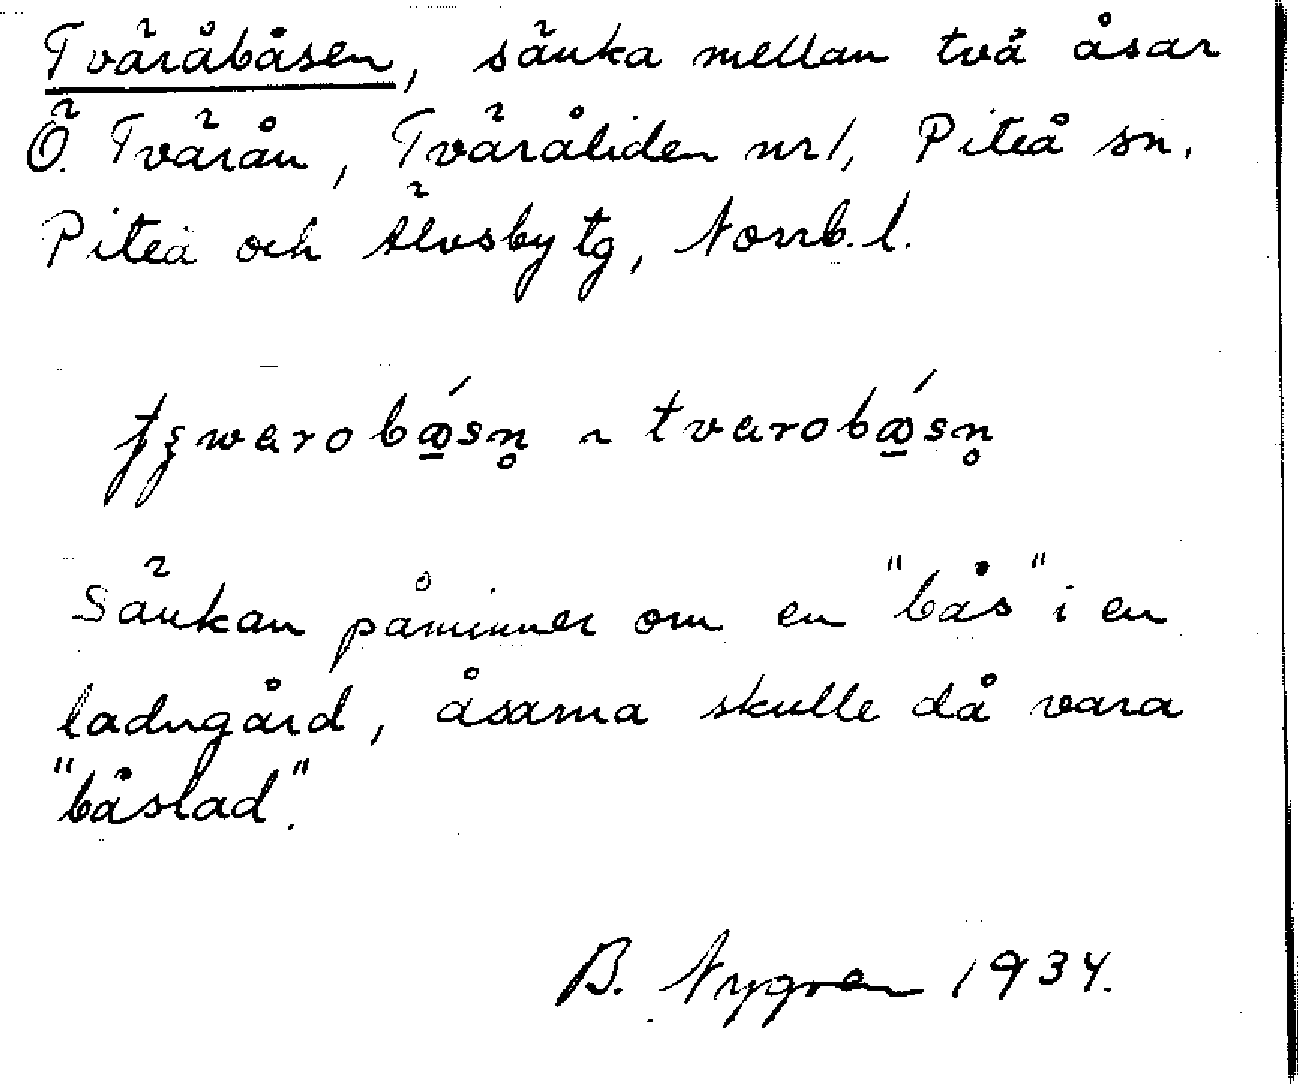 Tväråbåsen, sänka mellan två åsar
Ö. Tvärån, Tväråliden nr 1, Piteå sn,
Piteå och Älvsby tg, Norrb. l.
tvarobǻsn̥
Sänkan påminner om en "bås" i en
ladugård, åsarna skulle då vara
"båslad".
B. Nygren 1934.